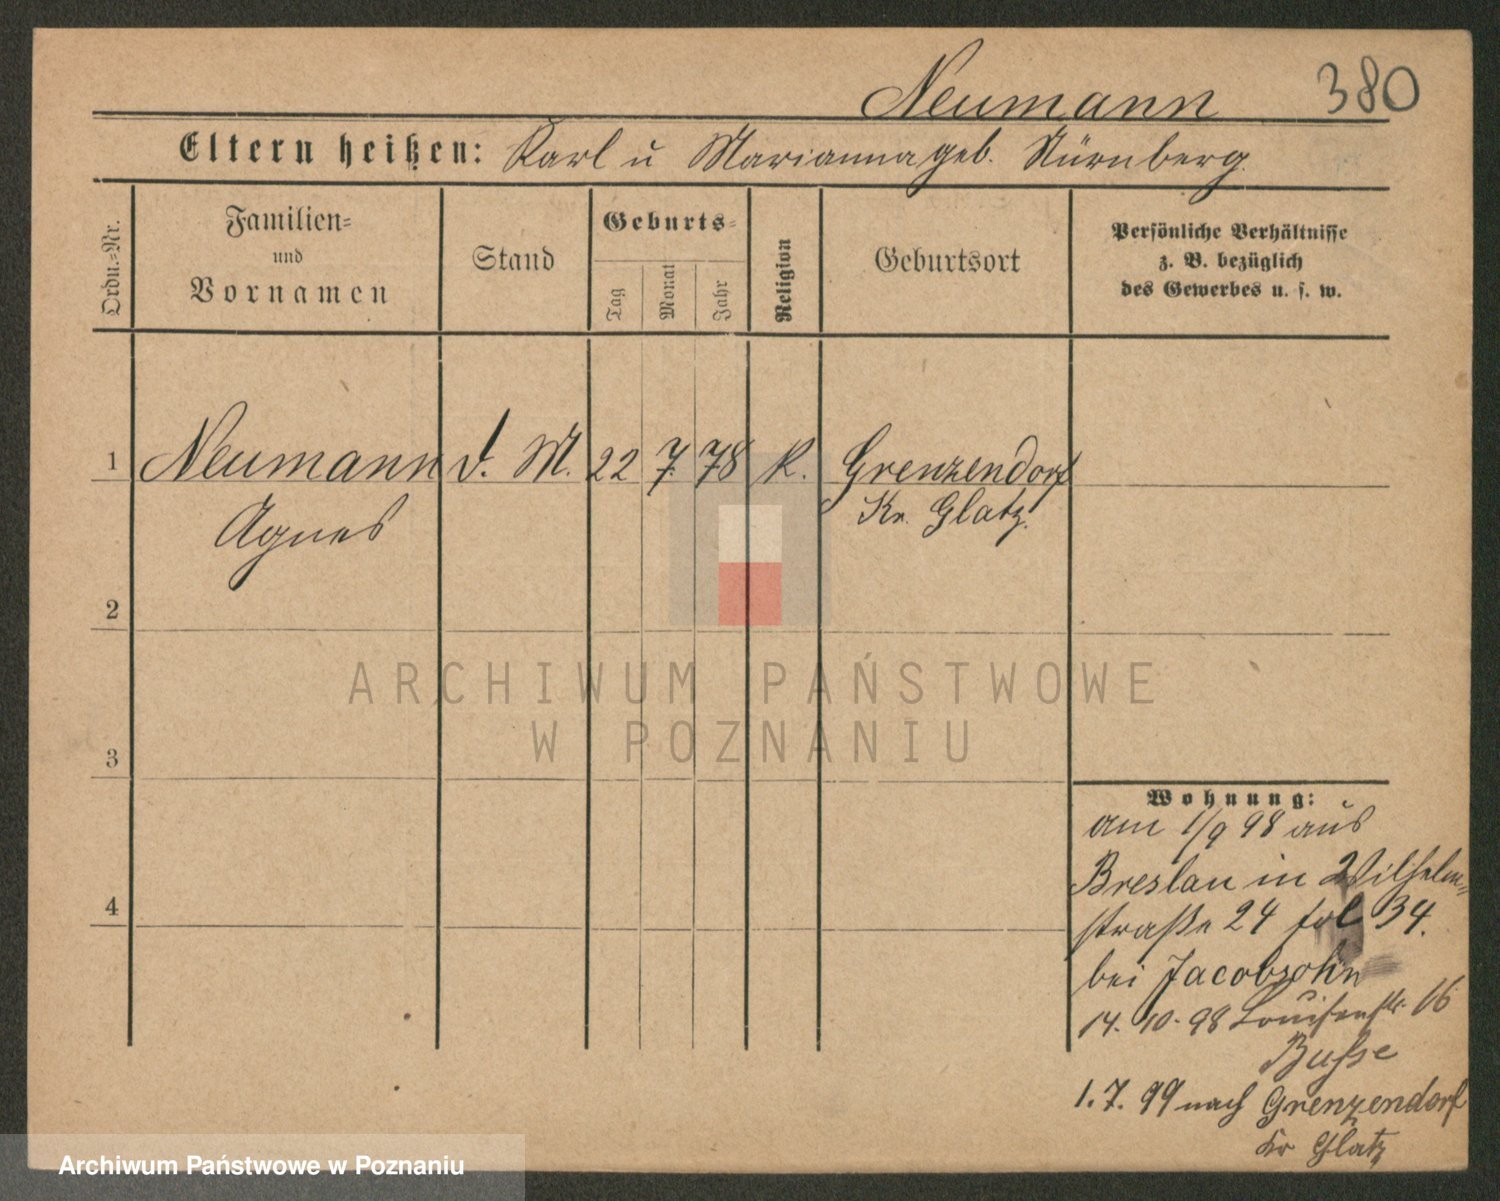 Neumann 380
Eltern heißen: Karl u Marianna geb. Nürnberg.
Ordn.=Nr.
Familien=
und
Vornamen
Stand
Geburts=
Tag
Monat
Jahr
Religion
Geburtsort
Persönliche Verhältnisse
z. B. bezüglich
des Gewerbes u. s. w.
1 Neumann d. M. 22 7. 78 K. Grenzendorf
Agnes Kr. Glatz.
2
3
4
ARCHIWUM PAŃSTWOWE
W POZNANIU
Wohnung:
am 1/9 98 aus
Breslau in Wilhelm=
straße 24 fol 34.
bei Jacobsohn
14. 10. 98 Louisenstr. 16
Busse
1. 7. 99 nach Grenzendorf
Kr Glatz
Archiwum Państwowe w Poznaniu